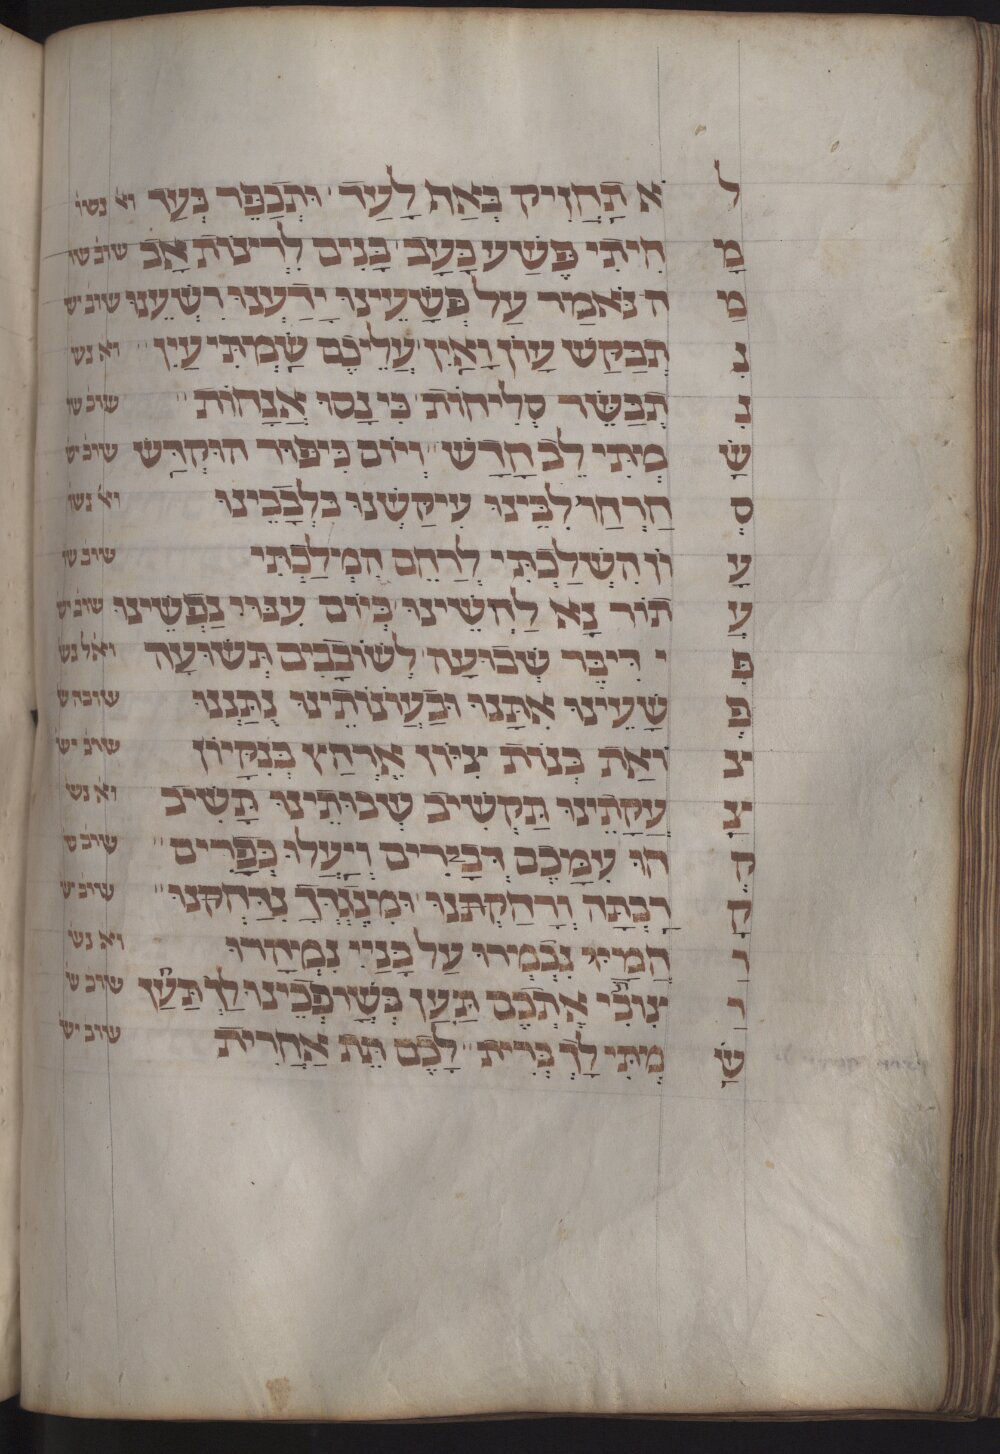 ל א תַחֲזִיק בְּאַת לָעַד ׳ וּתְכַפֵּר בְּעַד וא נשו
מָ חִיתִי פֶּשַׁע כָּעָב ׳ בָּנִים לְרִיצוּת אָב שוב שו
מַ ה נֹּאמַר עַל פְּשָׁעֵינוּ יָדַעְנוּ רִשְׁעֵנוּ שוב יש
נִ תְבַּקֵּשׁ עָוֹן וָאָיִן ׳ עֲלֵיכֶם שַׂמְתִּי עַיִן וא נש
נִ תְבַּשֵּׂר סְלִיחוֹת ׳ כִּי נָסוּ אֲנָחוֹת שוב שו
שַׂ מְתִּי לֵב חָדָשׁ ׳ וְיוֹם כִּיפּוּר הוּקְדַּשׁ שוב יש
סְ חַרְחַר לִבֵּינוּ עִיקַשְׁנוּ בִלְבָבֵינוּ וא נשו
עָ וֹן הִשְׁלַכְתִּי לְרַחֵם הִמְלַכְתִּי שוב שו
עֲ תוֹר נָא לַחֲשֵׁינוּ ׳ כְּיוֹם עִנּוּי נַפְשֵׁינוּ שוב יש
פִּ י דִּיבֵּר שְׁבוּעָה ׳ לְשׁוֹבָבִים תְּשׁוּעָה ואל נש
פְּ שָׁעֵינוּ אִתָּנוּ וּבַעֲוֹנוֹתֵינוּ נְתַנָּנוּ שוב ויש
צ וֹאַת בְּנוֹת צִיּוֹן אֶרְחַץ בְּנִקָּיוֹן שוב יש
צַ עֲקָתֵינוּ תַּקְשִׁיב שְׁבוּתֵינוּ תָּשִׁיב וא נש
קְ חוּ עִמָּכֶם דְּבָרִים וְיָעֲלוּ כְּפָרִים שוב ש
קָ רַבְתָּה וְרִחַקְתָּנוּ וּמִנֶּגְדְּךָ נִרְחַקְנוּ שוב יש
ר הֲמַיי נִכְמְרוּ עַל בָּנַיי נִמְהָרוּ וא נש
ר צוֹנִי אֶתְכֶם תַּעַן כְּשׁוּפְכֵינוּ לָךְ תַּעַן שוב ש
שַׂ מְתִּי לָךְ בְּרִית ׳ לָכֶם תֵּת אַחֲרִית שוב יש